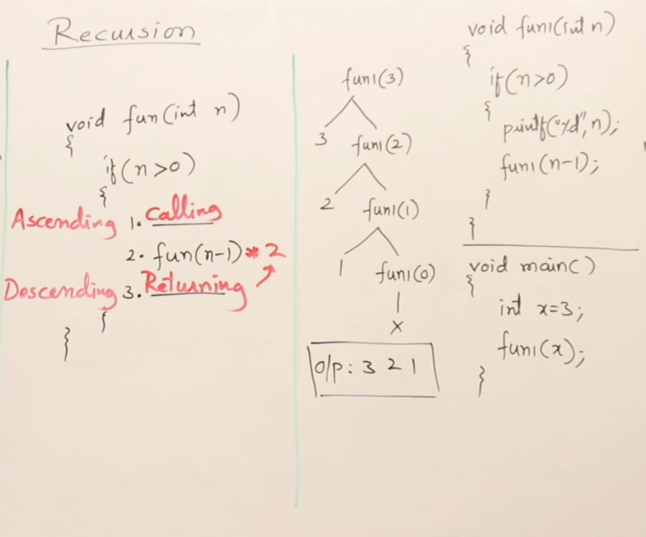 Recursion
void fun(int n)
{
if(n>0)
{
Ascending 1. Calling
2. fun(n-1) * 2
Descending 3. Returning
}
}
fun1(3)
3 fun1(2)
2 fun1(1)
1 fun1(0)
x
o/p: 3 2 1
void fun1(int n)
{
if(n>0)
{
printf("%d",n);
fun1(n-1);
}
}
void main()
{
int x=3;
fun1(x);
}